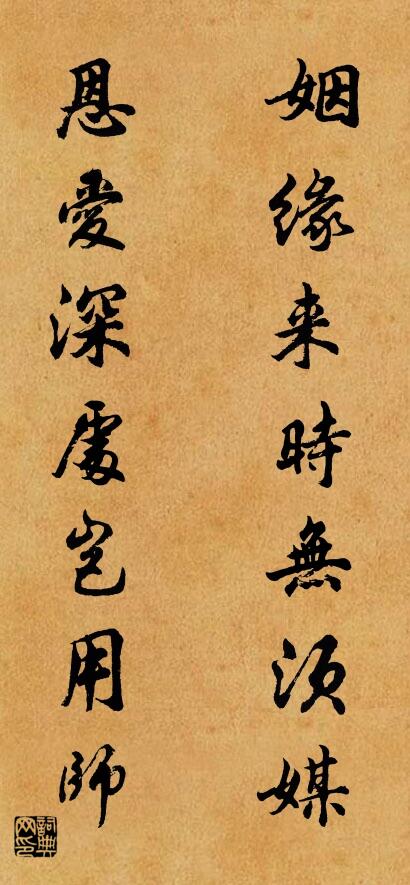 姻缘来時無須媒
恩愛深處岂用師
詞典网印